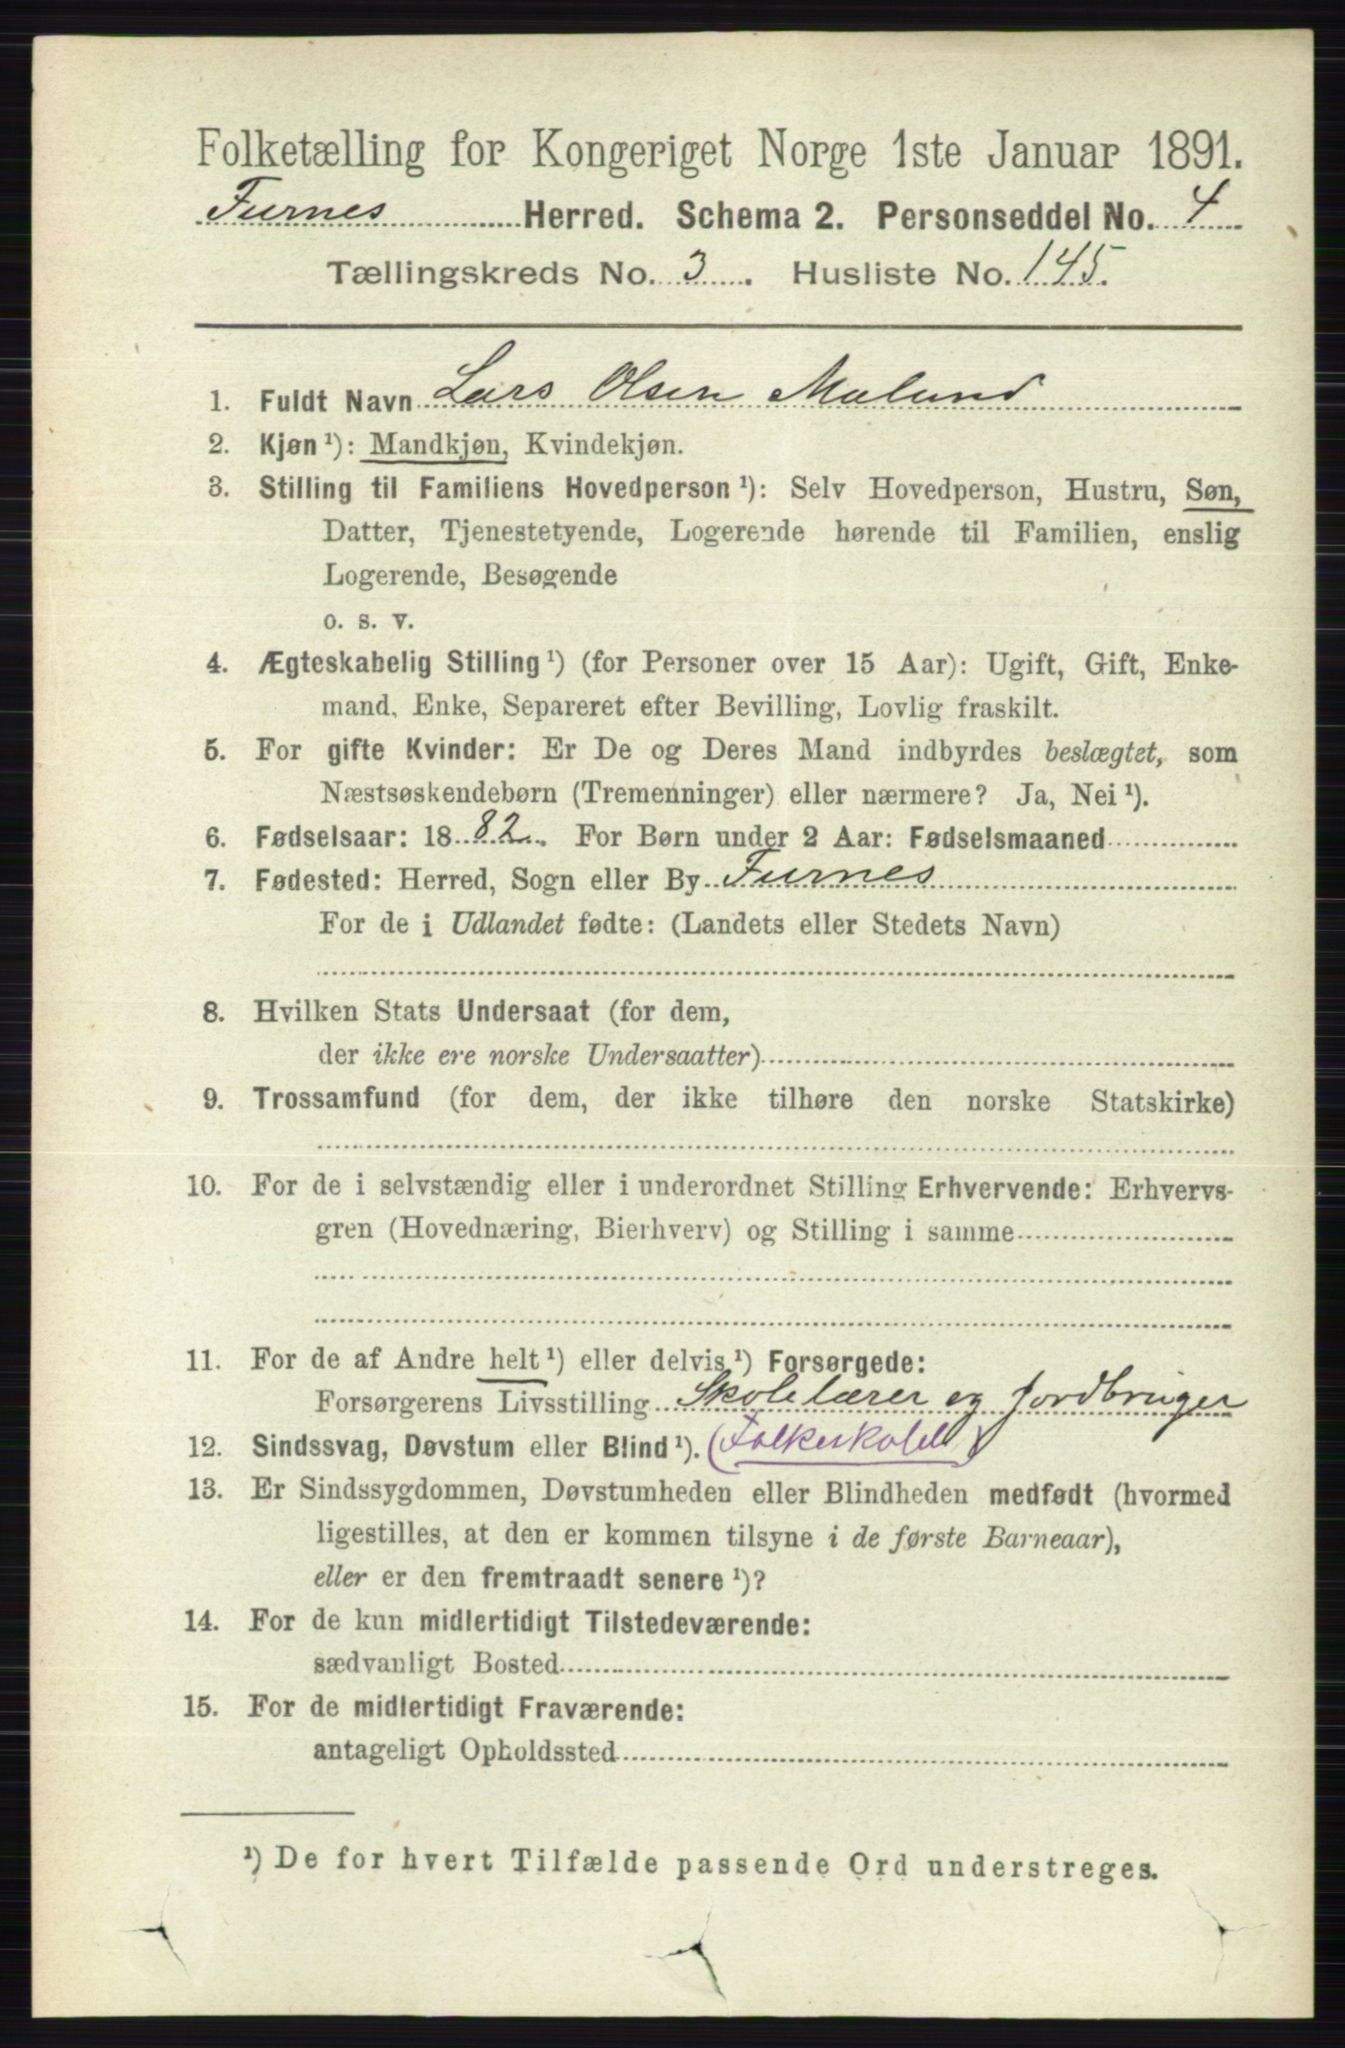 Folketælling for Kongeriget Norge 1ste Januar 1891.
Furnes Herred. Schema 2. Personseddel No. 4
Tællingskreds No. 3. Husliste No. 145.
1. Fuldt Navn Lars Olsen Mælund
2. Kjøn¹): Mandkjøn, Kvindekjøn.
3. Stilling til Familiens Hovedperson¹): Selv Hovedperson, Hustru, Søn,
Datter, Tjenestetyende, Logerende hørende til Familien, enslig
Logerende, Besøgende
o. s. v.
4. Ægteskabelig Stilling¹) (for Personer over 15 Aar): Ugift, Gift, Enke-
mand, Enke, Separeret efter Bevilling, Lovlig fraskilt.
5. For gifte Kvinder: Er De og Deres Mand indbyrdes beslægtet, som
Næstsøskendebørn (Tremenninger) eller nærmere? Ja, Nei¹).
6. Fødselsaar: 1882. For Børn under 2 Aar: Fødselsmaaned
7. Fødested: Herred, Sogn eller By Furnes
For de i Udlandet fødte: (Landets eller Stedets Navn)
8. Hvilken Stats Undersaat (for dem,
der ikke ere norske Undersaatter)
9. Trossamfund (for dem, der ikke tilhøre den norske Statskirke)
10. For de i selvstændig eller i underordnet Stilling Erhvervende: Erhvervs-
gren (Hovednæring, Bierhverv) og Stilling i samme
11. For de af Andre helt¹) eller delvis¹) Forsørgede:
Forsørgerens Livsstilling Skolelærer og Jordbruger
12. Sindssvag, Døvstum eller Blind¹). (Folkeskolel)
13. Er Sindssygdommen, Døvstumheden eller Blindheden medfødt (hvormed
ligestilles, at den er kommen tilsyne i de første Barneaar),
eller er den fremtraadt senere¹)?
14. For de kun midlertidigt Tilstedeværende:
sædvanligt Bosted
15. For de midlertidigt Fraværende:
antageligt Opholdssted
¹) De for hvert Tilfælde passende Ord understreges.